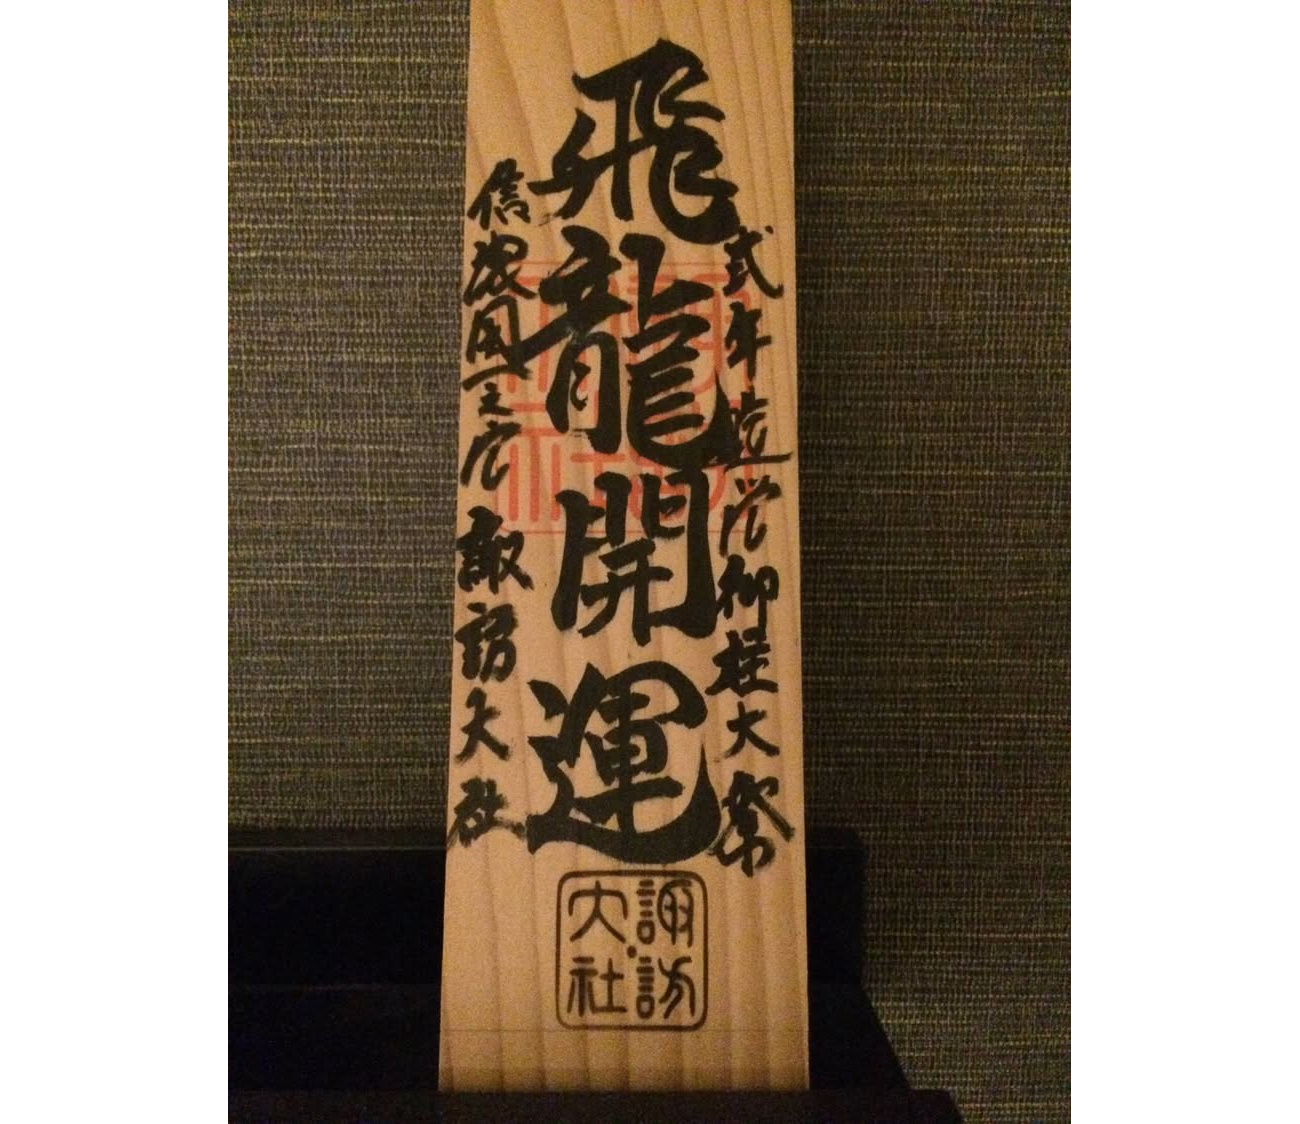 式年造営御柱大祭
飛龍開運
信濃国一之宮 諏訪大社
諏訪大社